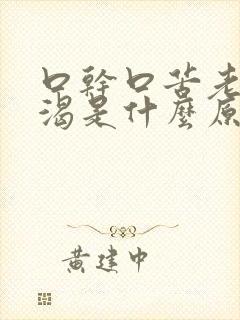 口幹口苦老
渴是什麼原
黃建中